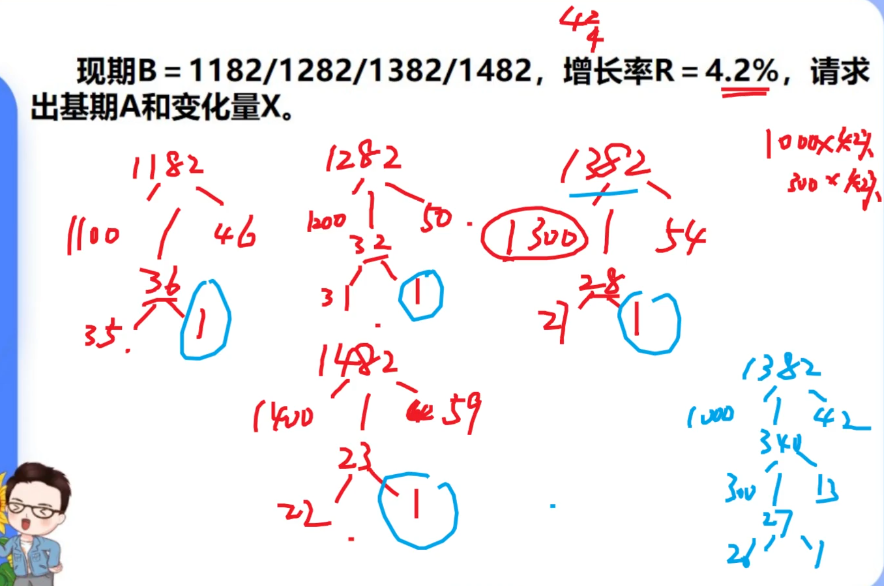 4 2/4
现期B＝1182/1282/1382/1482，增长率R＝4.2%，请求
出基期A和变化量X。
1000×4.2%
300×4.2%
1182
1100 46
36
35 1
1282
1200 50
32
31 1
1382
1300 54
28
27 1
1482
1400 59
23
22 1
1382
1000 42
340
300 13
27
26 1